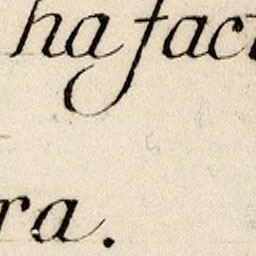 ha fact
ra.